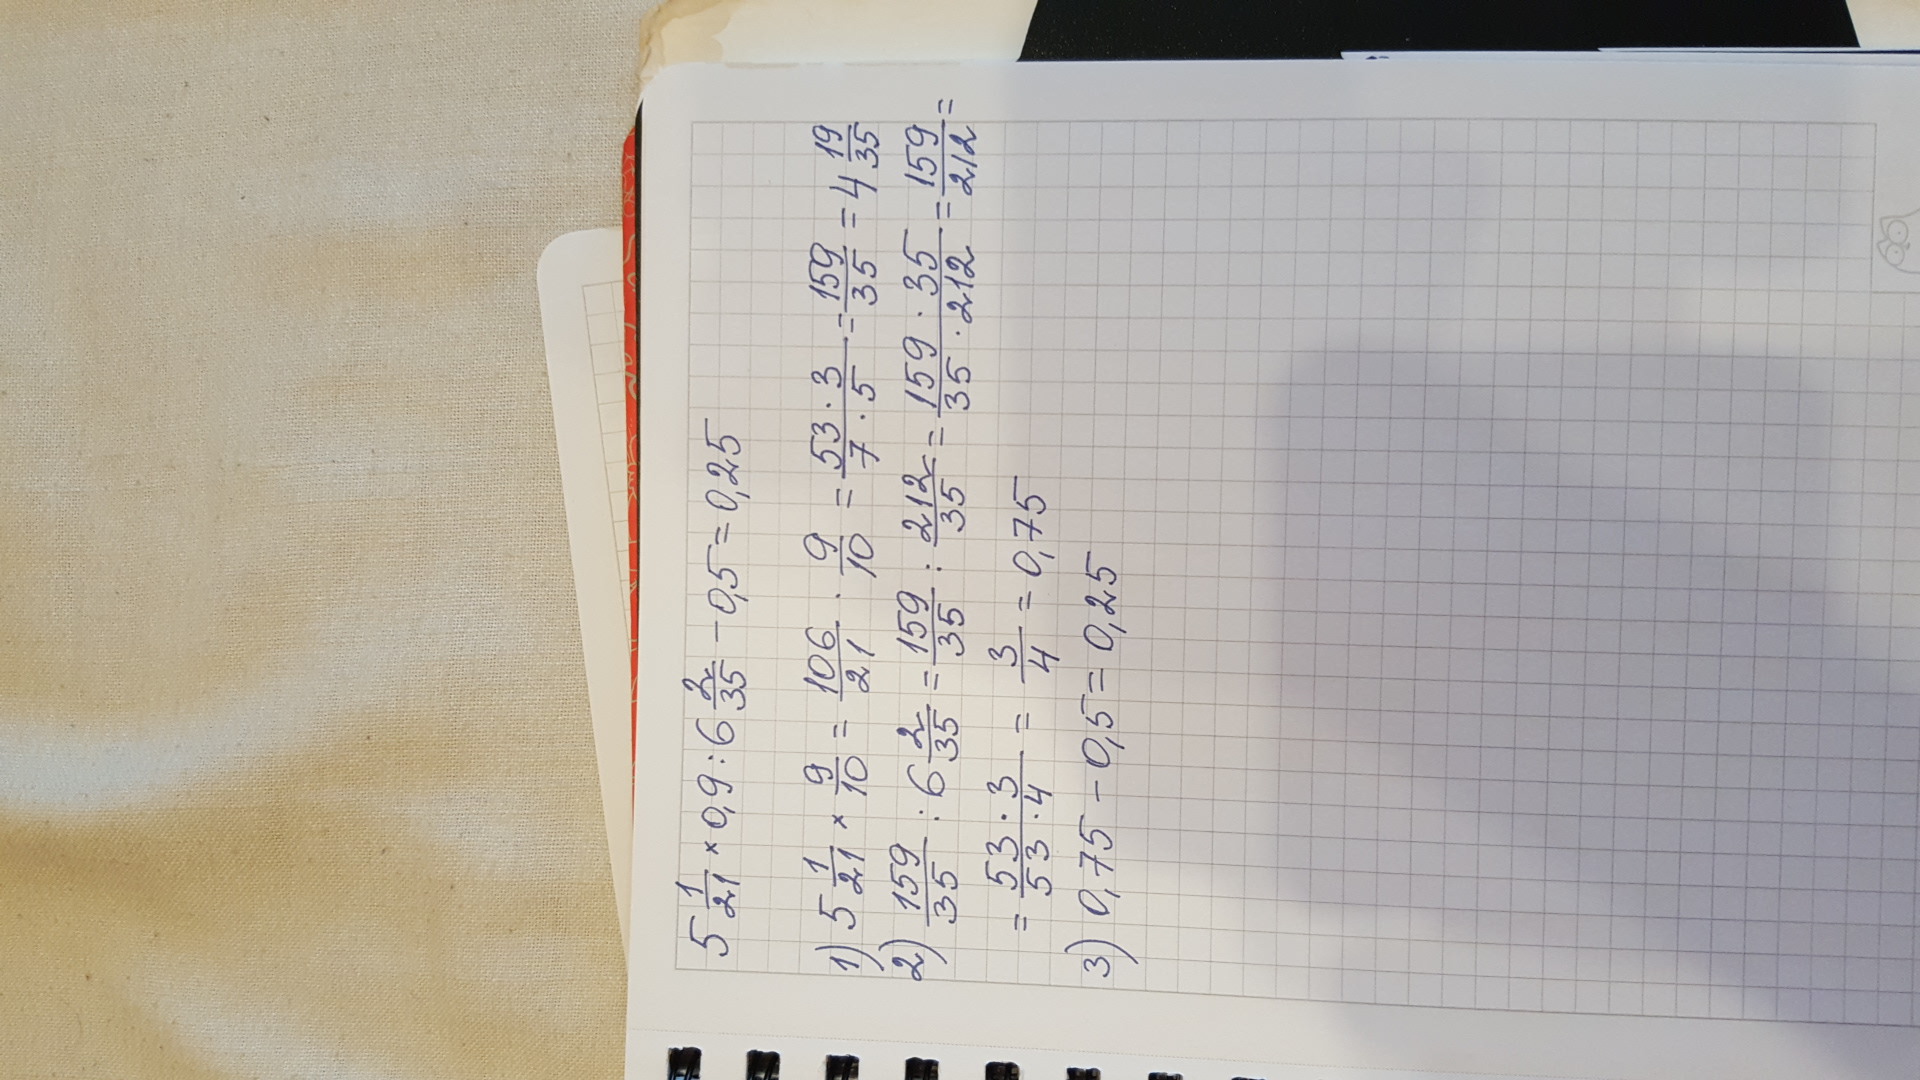 5 1/21 × 0,9 : 6 2/35 - 0,5 = 0,25
1) 5 1/21 × 9/10 = 106/21 · 9/10 = 53·3/7·5 = 159/35 = 4 19/35
2) 159/35 : 6 2/35 = 159/35 : 212/35 = 159·35/35·212 = 159/212 =
= 53·3/53·4 = 3/4 = 0,75
3) 0,75 - 0,5 = 0,25